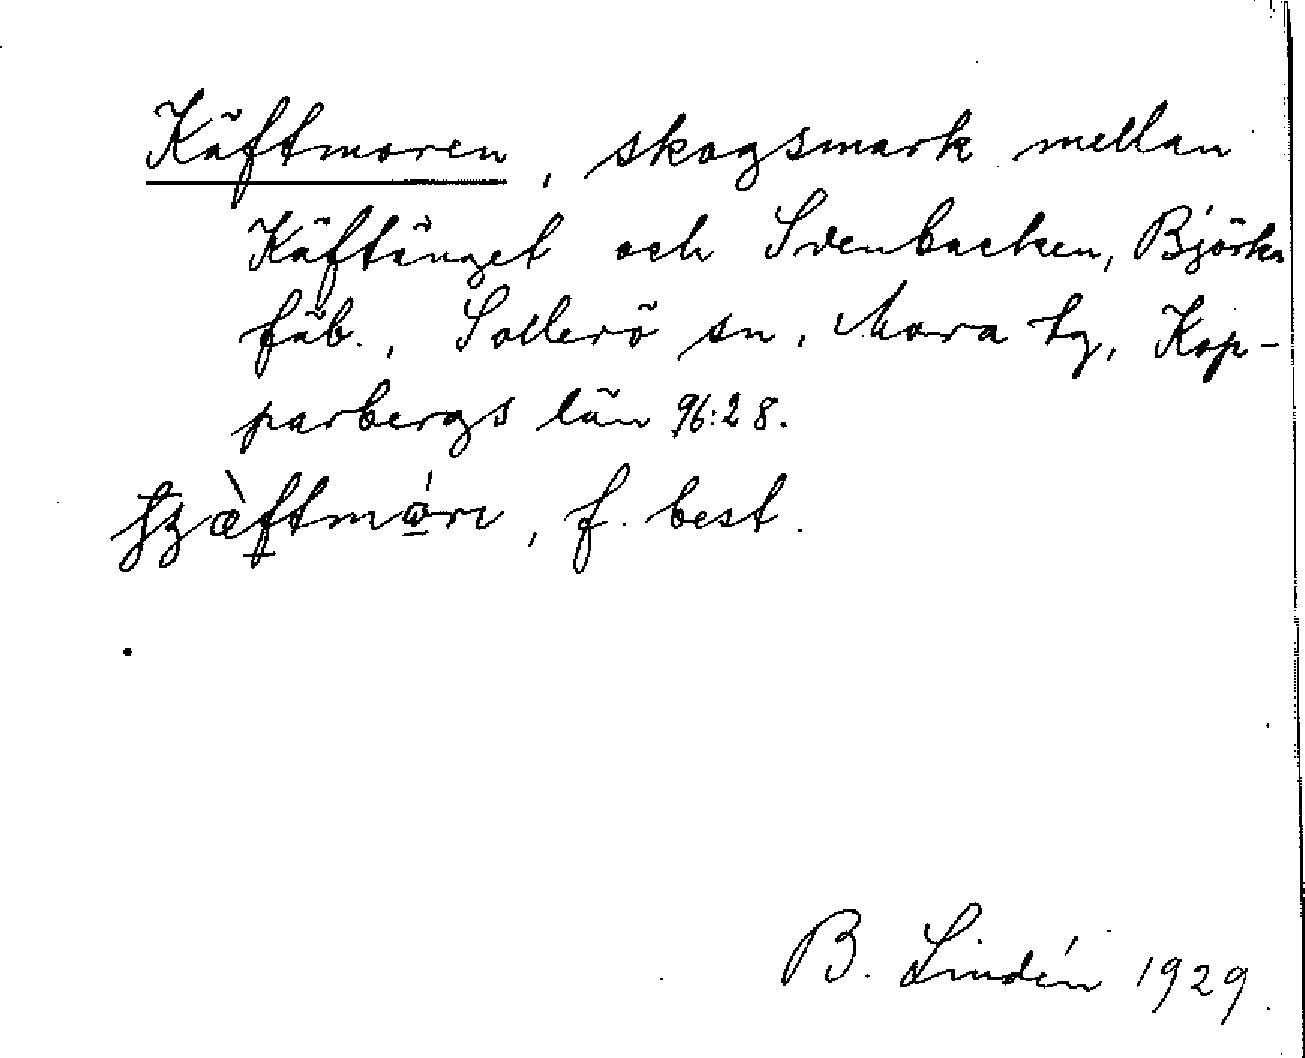 Käftmoren, skogsmark mellan
Käftänget och Svenbacken, Björka
fäb., Sollerö sn, Mora tg, Kop-
parbergs län 96:28.
, f. best.
B. Lindén 1929.